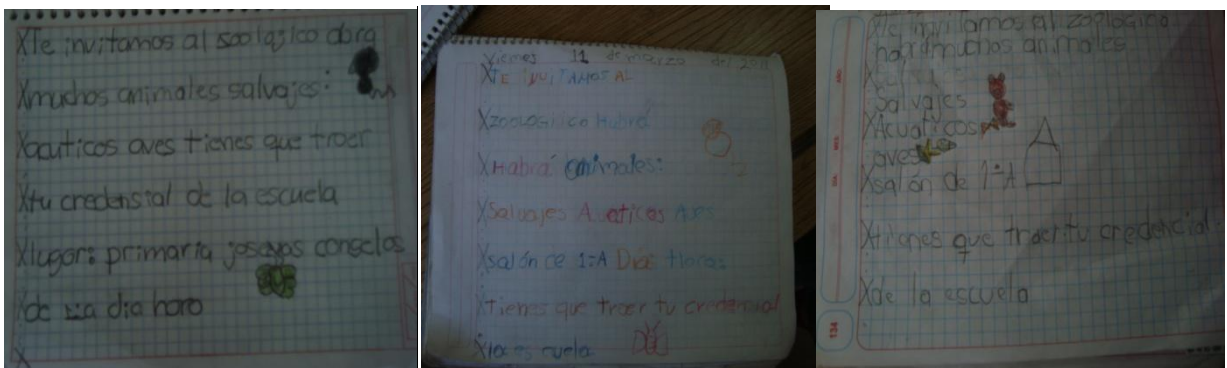 XTe invitamos al soologico abra
Xmuchos animales salvajes:
Xacuticos aves tienes que traer
Xtu credensial de la escuela
Xlugar: primaria
Xde dia haro
X
Viernes 11 de marzo del 2011
XTE INVITAMOS AL
XZOOLOGICO Habrá
XHabrá animales:
XSalvajes Acuaticos Aves
Xsalón de 1:A Días Horas
XTienes que traer tu credencial
Xla es cuela
XTe invitamos al zoologico
habrá muchos animales
Salvajes
XAcuaticos
aves
Xsalón de 1:A
Xtienes que traer tu credencial
Xde la escuela
134